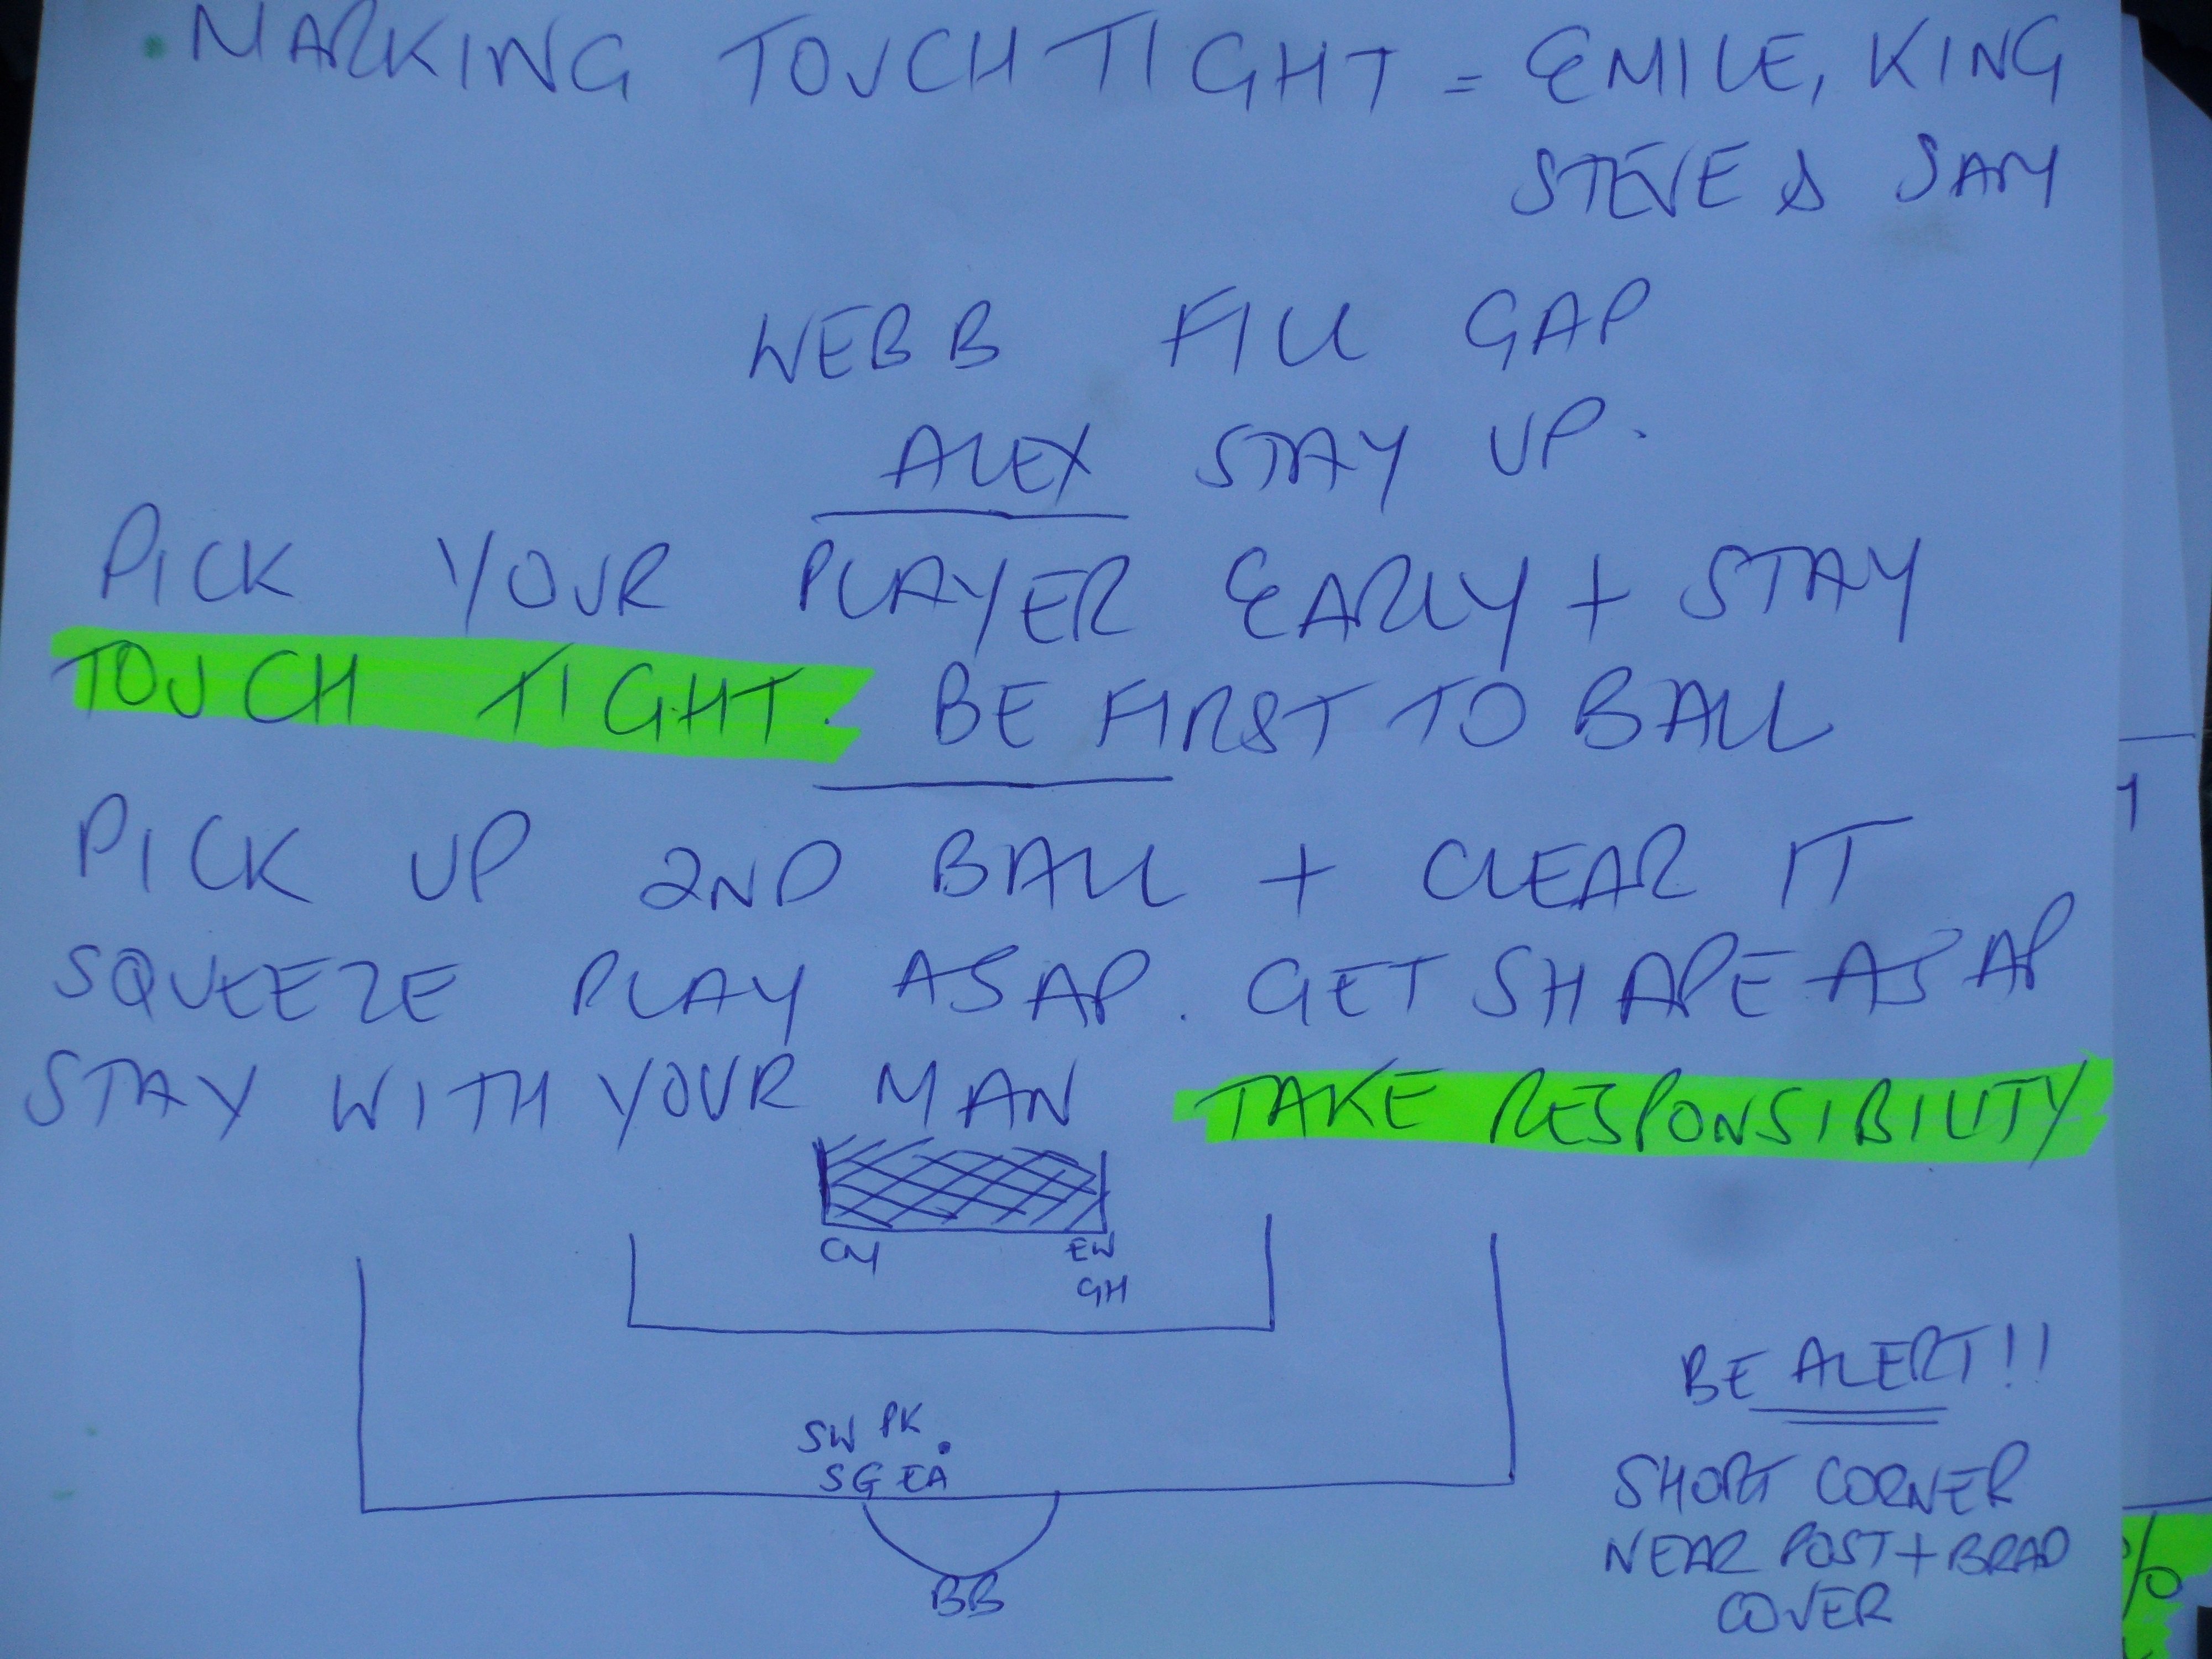 • MARKING TOUCH TIGHT = EMILE, KING
STEVE & SAM
WEBB FILL GAP
ALEX STAY UP.
PICK YOUR PLAYER EARLY + STAY
TOUCH TIGHT. BE FIRST TO BALL
PICK UP 2ND BALL + CLEAR IT
SQUEEZE PLAY ASAP. GET SHAPE ASAP
STAY WITH YOUR MAN TAKE RESPONSIBILITY
CM EW
GH
SW PK
SG EA
BB
BE ALERT!!
SHORT CORNER
NEAR POST + BRAD
COVER
1
%